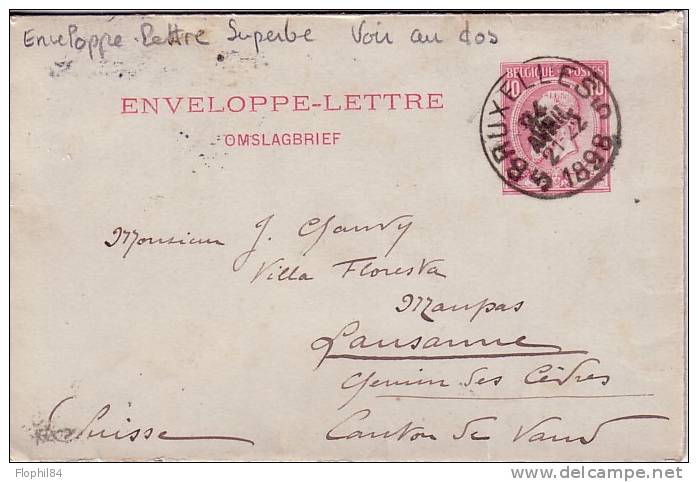 Enveloppe-Lettre Superbe Voir au dos
BELGIQUE POSTES
10 10
BRUXELLES 5
24 AVRIL
21-22
1898
ENVELOPPE-LETTRE
OMSLAGBRIEF
Monsieur J. Chauvy
Villa Floresta
Maupas
Lausanne
Chemin des Cèdres
Suisse Canton de Vaud
Flophil84
www.delcampe.net